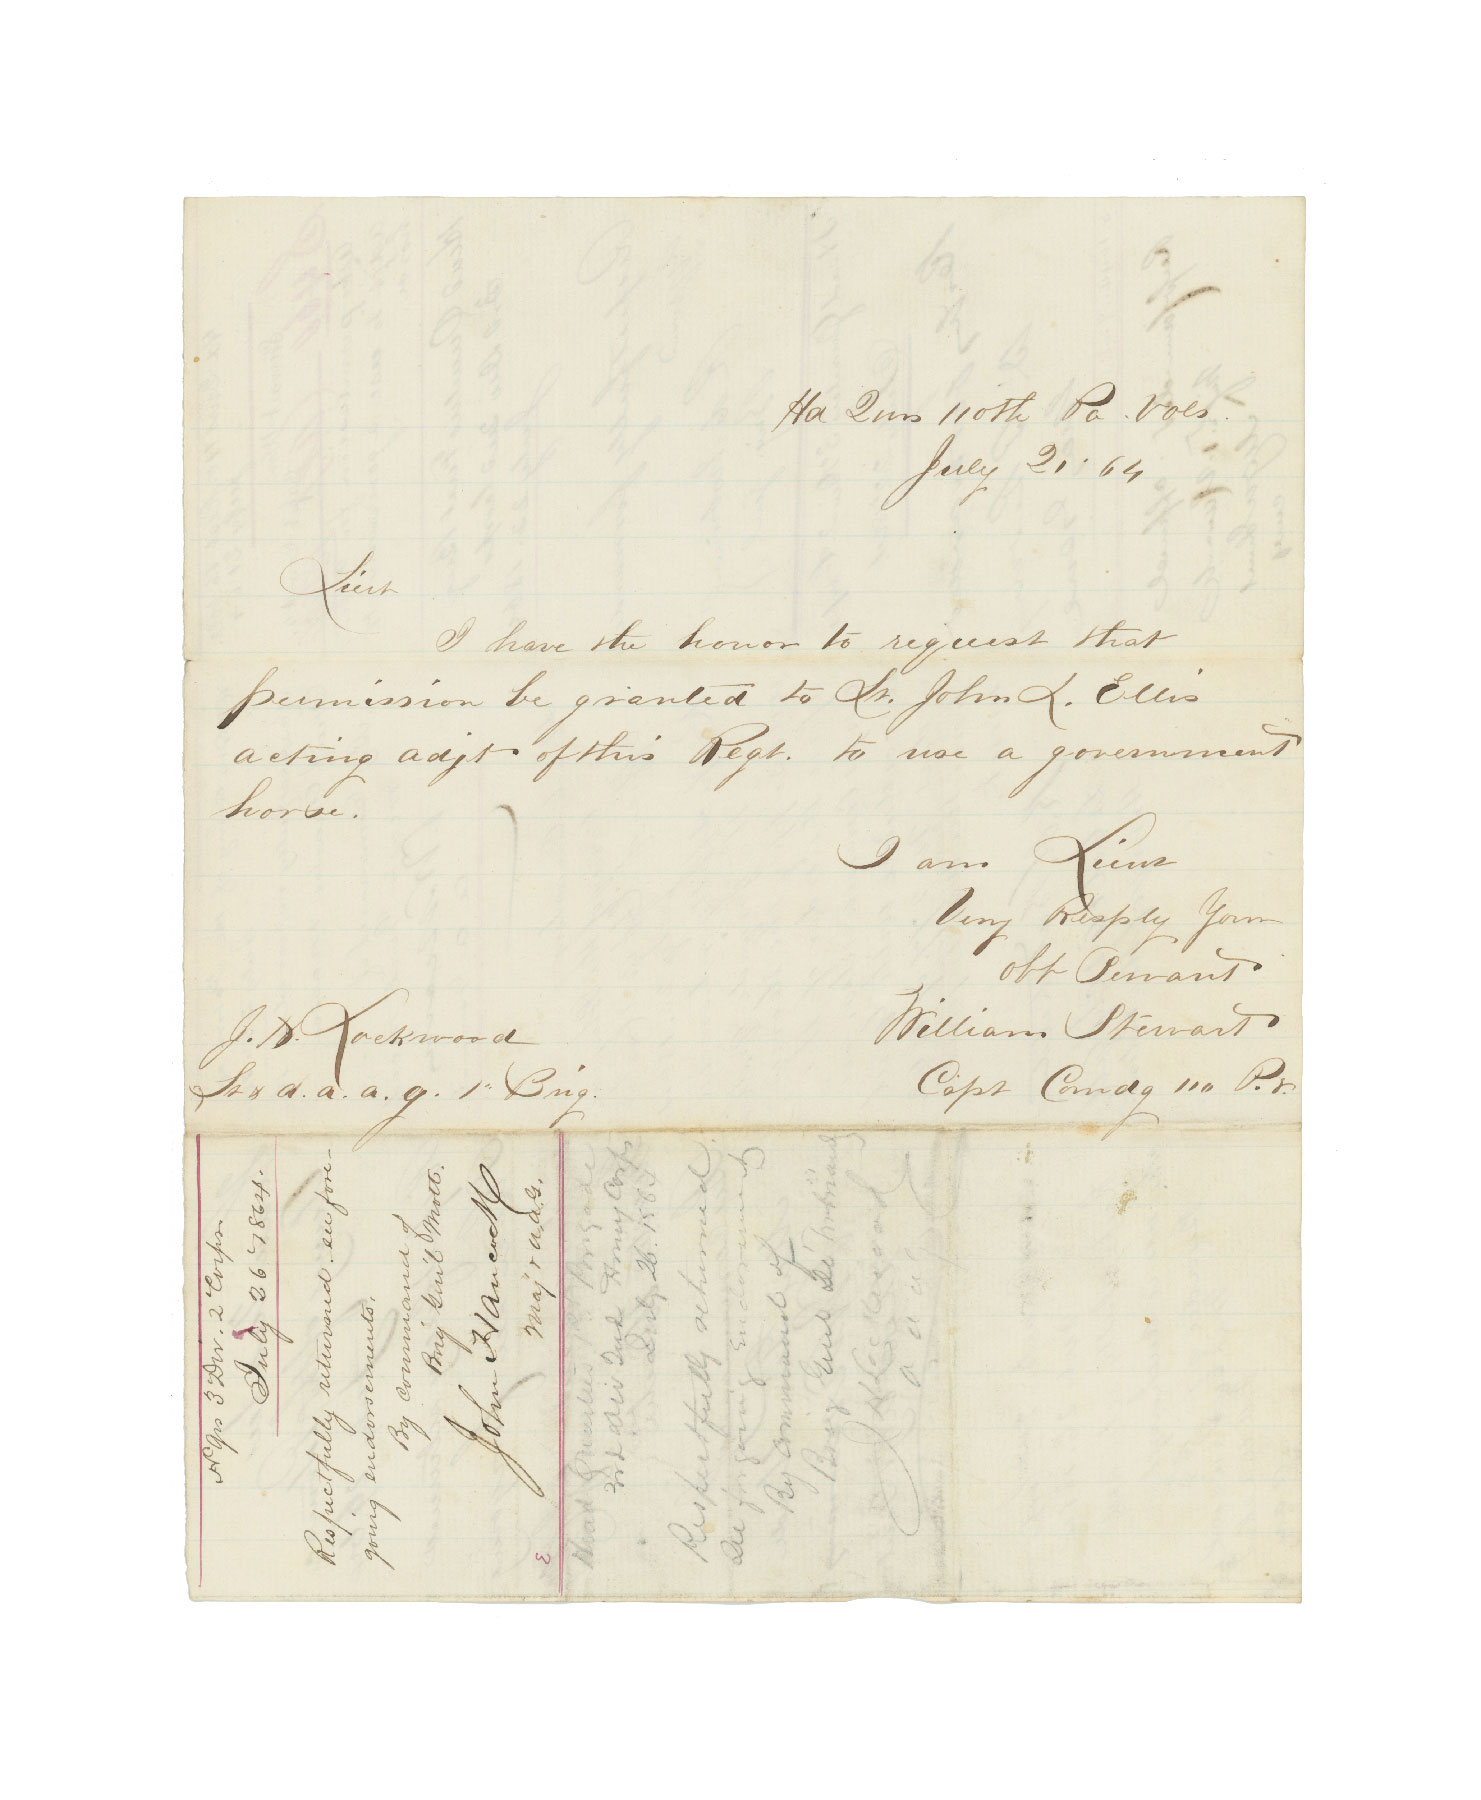 Hd Qurs 110th Pa. Vols.
July 21 64
Lieut
I have the honor to request that
permission be granted to Lt. John L. Ellis
acting adjt of this Regt. to use a government
horse.
I am Lieut
Very Resply Your
obt Servant
William Stewart
Capt Comdg 110 P.V.
J. N. Lockwood
Lt & a. a. a. g. 1st Brig.
H Qrs 3 Div. 2 Corps
July 26 1864.
Respectfully returned see fore-
going endorsements.
By Command of
Brig Genl Mott.
John Hancock
Maj & a.a.G.
Head Quarters 1st Brigade
3rd Div 2nd Army Corps
July 26. 1864
Respectfully returned.
See forgoing Endorsements
By command of
Brig Genl De Trobriand
J N Lockwood